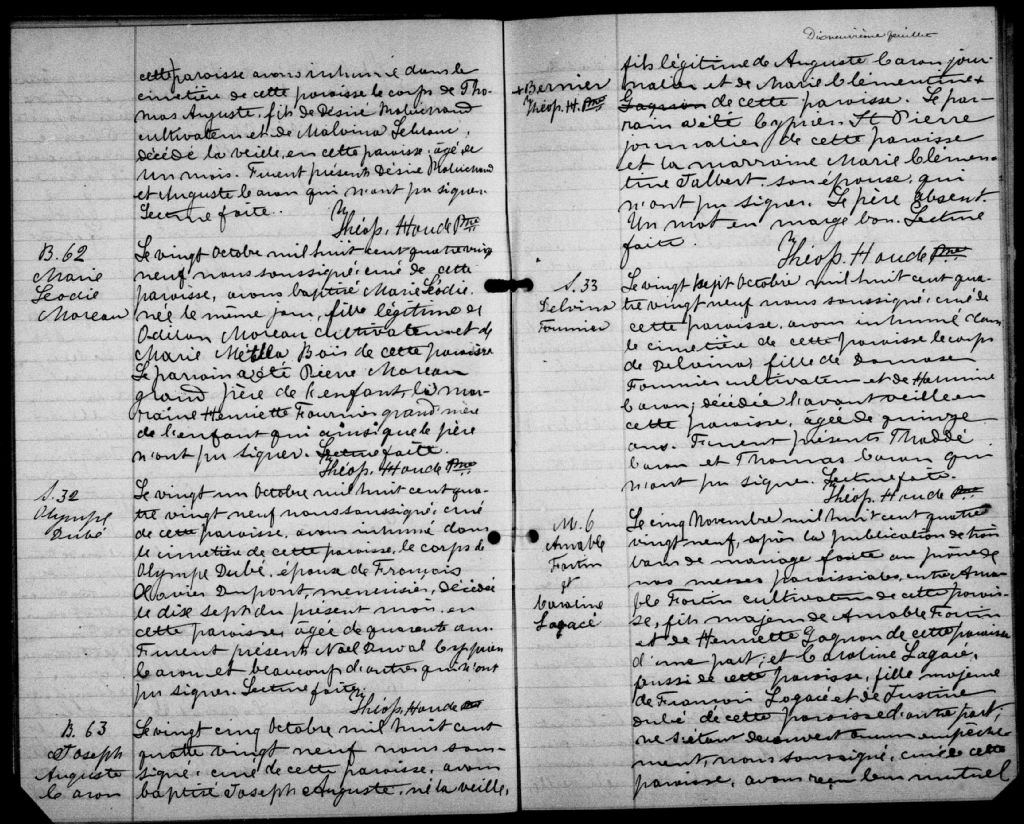 cette paroisse avons inhumé dans le
cimetière de cette paroisse le corps de Tho-
mas Auguste, fils de Désiré Robichaud
cultivateur et de Malvina Lebrun,
décédé la veille, en cette paroisse, âgé de
un mois. Furent présents Désiré Robichaud
et Auguste Caron qui n'ont pu signer.
Lecture faite.
Théop. Houde Ptre
B. 62
Marie
Léodie
Moreau
Le vingt Octobre mil huit cent quatre vingt
neuf nous soussigné, curé de cette
paroisse, avons baptisé Marie Léodie
née le même jour, fille légitime de
Odilon Moreau cultivateur et de
Marie Bois de cette paroisse
Le parrain a été Pierre Moreau
grand père de l'enfant, la mar-
raine Henriette Fournier grand'mère
de l'enfant qui ainsi que le père
n'ont pu signer. Lecture faite.
Théop. Houde Ptre
S. 32
Olympe
Dubé
Le vingt un Octobre mil huit cent qua-
tre vingt neuf nous soussigné, curé
de cette paroisse, avons inhumé dans
le cimetière de cette paroisse, le corps de
Olympe Dubé, épouse de François
Xavier Dupont, menuisier, décédée
le dix sept du présent mois, en
cette paroisse, âgée de quarante ans.
Furent présents Noël Duval Cyprien
Caron et beaucoup d'autres qui n'ont
pu signer. Lecture faite
Théop. Houde Ptre
B. 63
Joseph
Auguste
Caron
Le vingt cinq Octobre mil huit cent
quatre vingt neuf nous sous-
signé, curé de cette paroisse, avons
baptisé Joseph Auguste, né la veille,
Dixneuvième feuillet
+ Bernier
Théop. H. Ptre
fils légitime de Auguste Caron jour-
nalier et de Marie Clémentine +
Gagnon de cette paroisse. Le par-
rain a été Cyprien St Pierre
journalier de cette paroisse
et la marraine Marie Clémen-
tine Jalbert, son épouse, qui
n'ont pu signer. Le père absent.
Un mot en marge bon. Lecture
faite.
Théop. Houde Ptre
S. 33
Delvina
Fournier
Le vingt sept Octobre mil huit cent qua-
tre vingt neuf nous soussigné, curé de
cette paroisse, avons inhumé dans
le cimetière de cette paroisse le corps
de Delvina, fille de Damase
Fournier cultivateur et de Hermine
Caron, décédée l'avant veille en
cette paroisse, âgée de quinze
ans. Furent présents Thaddé
Caron et Thomas Caron qui
n'ont pu signer. Lecture faite.
Théop. Houde Ptre
M. 6
Amable
Fortin
et
Caroline
Lagacé
Le cinq Novembre mil huit cent quatre
vingt neuf, après la publication de trois
bans de mariage faite au prône de
nos messes paroissiales, entre Ama-
ble Fortin cultivateur de cette parois-
se, fils majeur de Amable Fortin
et de Henriette Gagnon de cette paroisse
d'une part; et Caroline Lagacé,
aussi de cette paroisse, fille majeure
de François Lagacé et de Justine
Dubé de cette paroisse d'autre part;
ne s'étant découvert aucun empêche-
ment, nous soussigné, curé de cette
paroisse, avons reçu leur mutuel